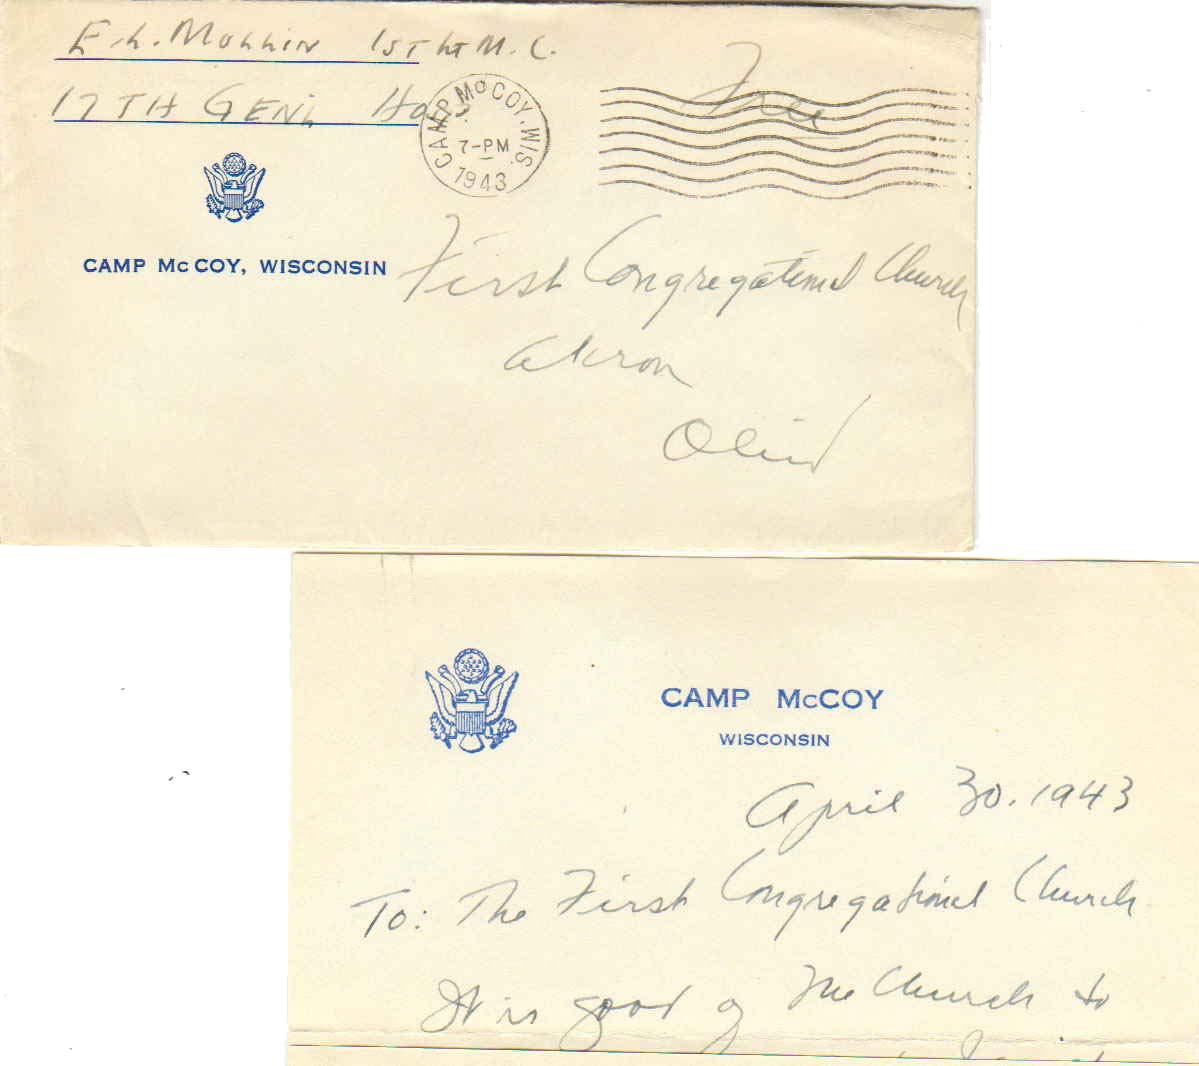 E.L. Mollin 1st Lt M.C.
17TH GEN'L Hosp
CAMP McCOY, WIS.
7-PM
1943
Free
CAMP McCOY, WISCONSIN
First Congregational Church
Akron
Ohio
CAMP McCOY
WISCONSIN
April 30. 1943
To: The First Congregational Church
It is good of The Church to